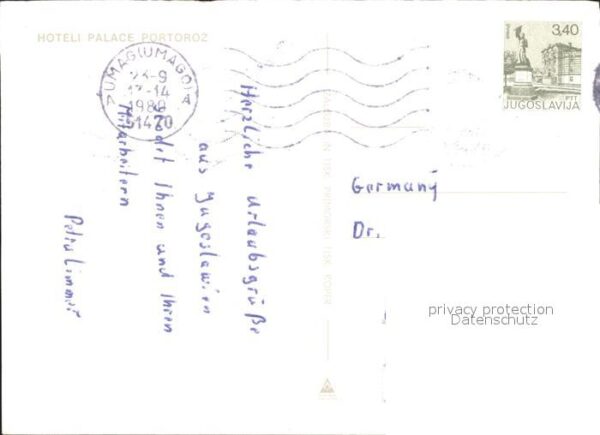 HOTELI PALACE PORTOROŽ
UMAG(UMAGO)
23-9
17-14
1980
51420
3,40
JUGOSLAVIJA
PTT
Herzliche Urlaubsgrüße
aus Jugoslawien
Ihnen und Ihren
Mitarbeitern
Germany
Dr.
privacy protection
Datenschutz